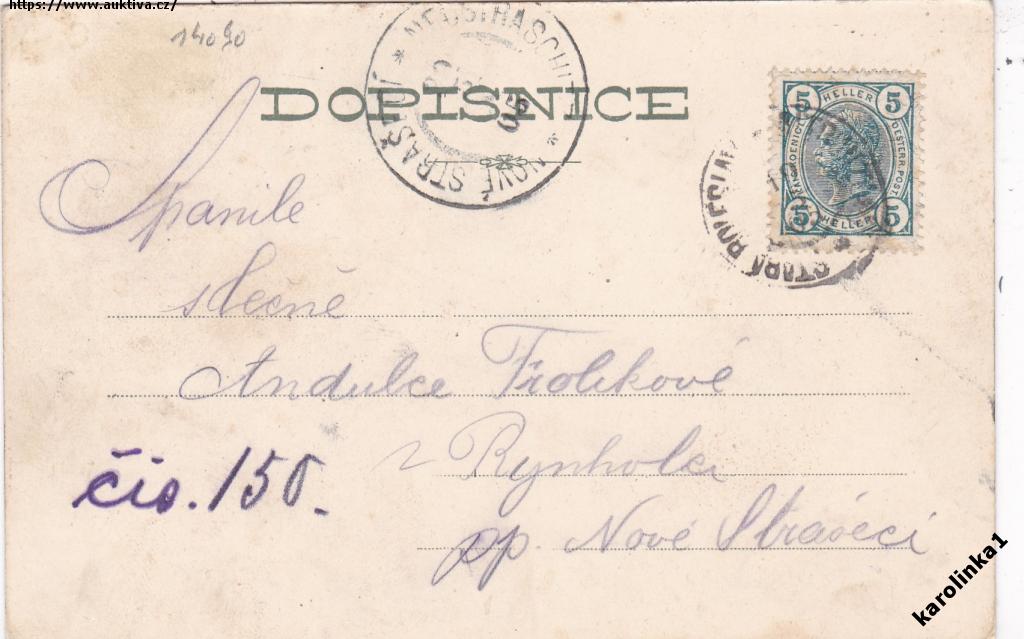 https://www.auktiva.cz/
14090
DOPISNICE
* NEUSTRASCHITZ * NOVÉ STRAŠECÍ
5 HELLER 5
KAIS.KOENIGL. OESTERR.POST
5 HELLER 5
STARÁ BOLESLAV
Spanile
slečně
Andulce Frolikové
z Rynholci
čís. 150.
pp. Nové Strašecí
karolinka1